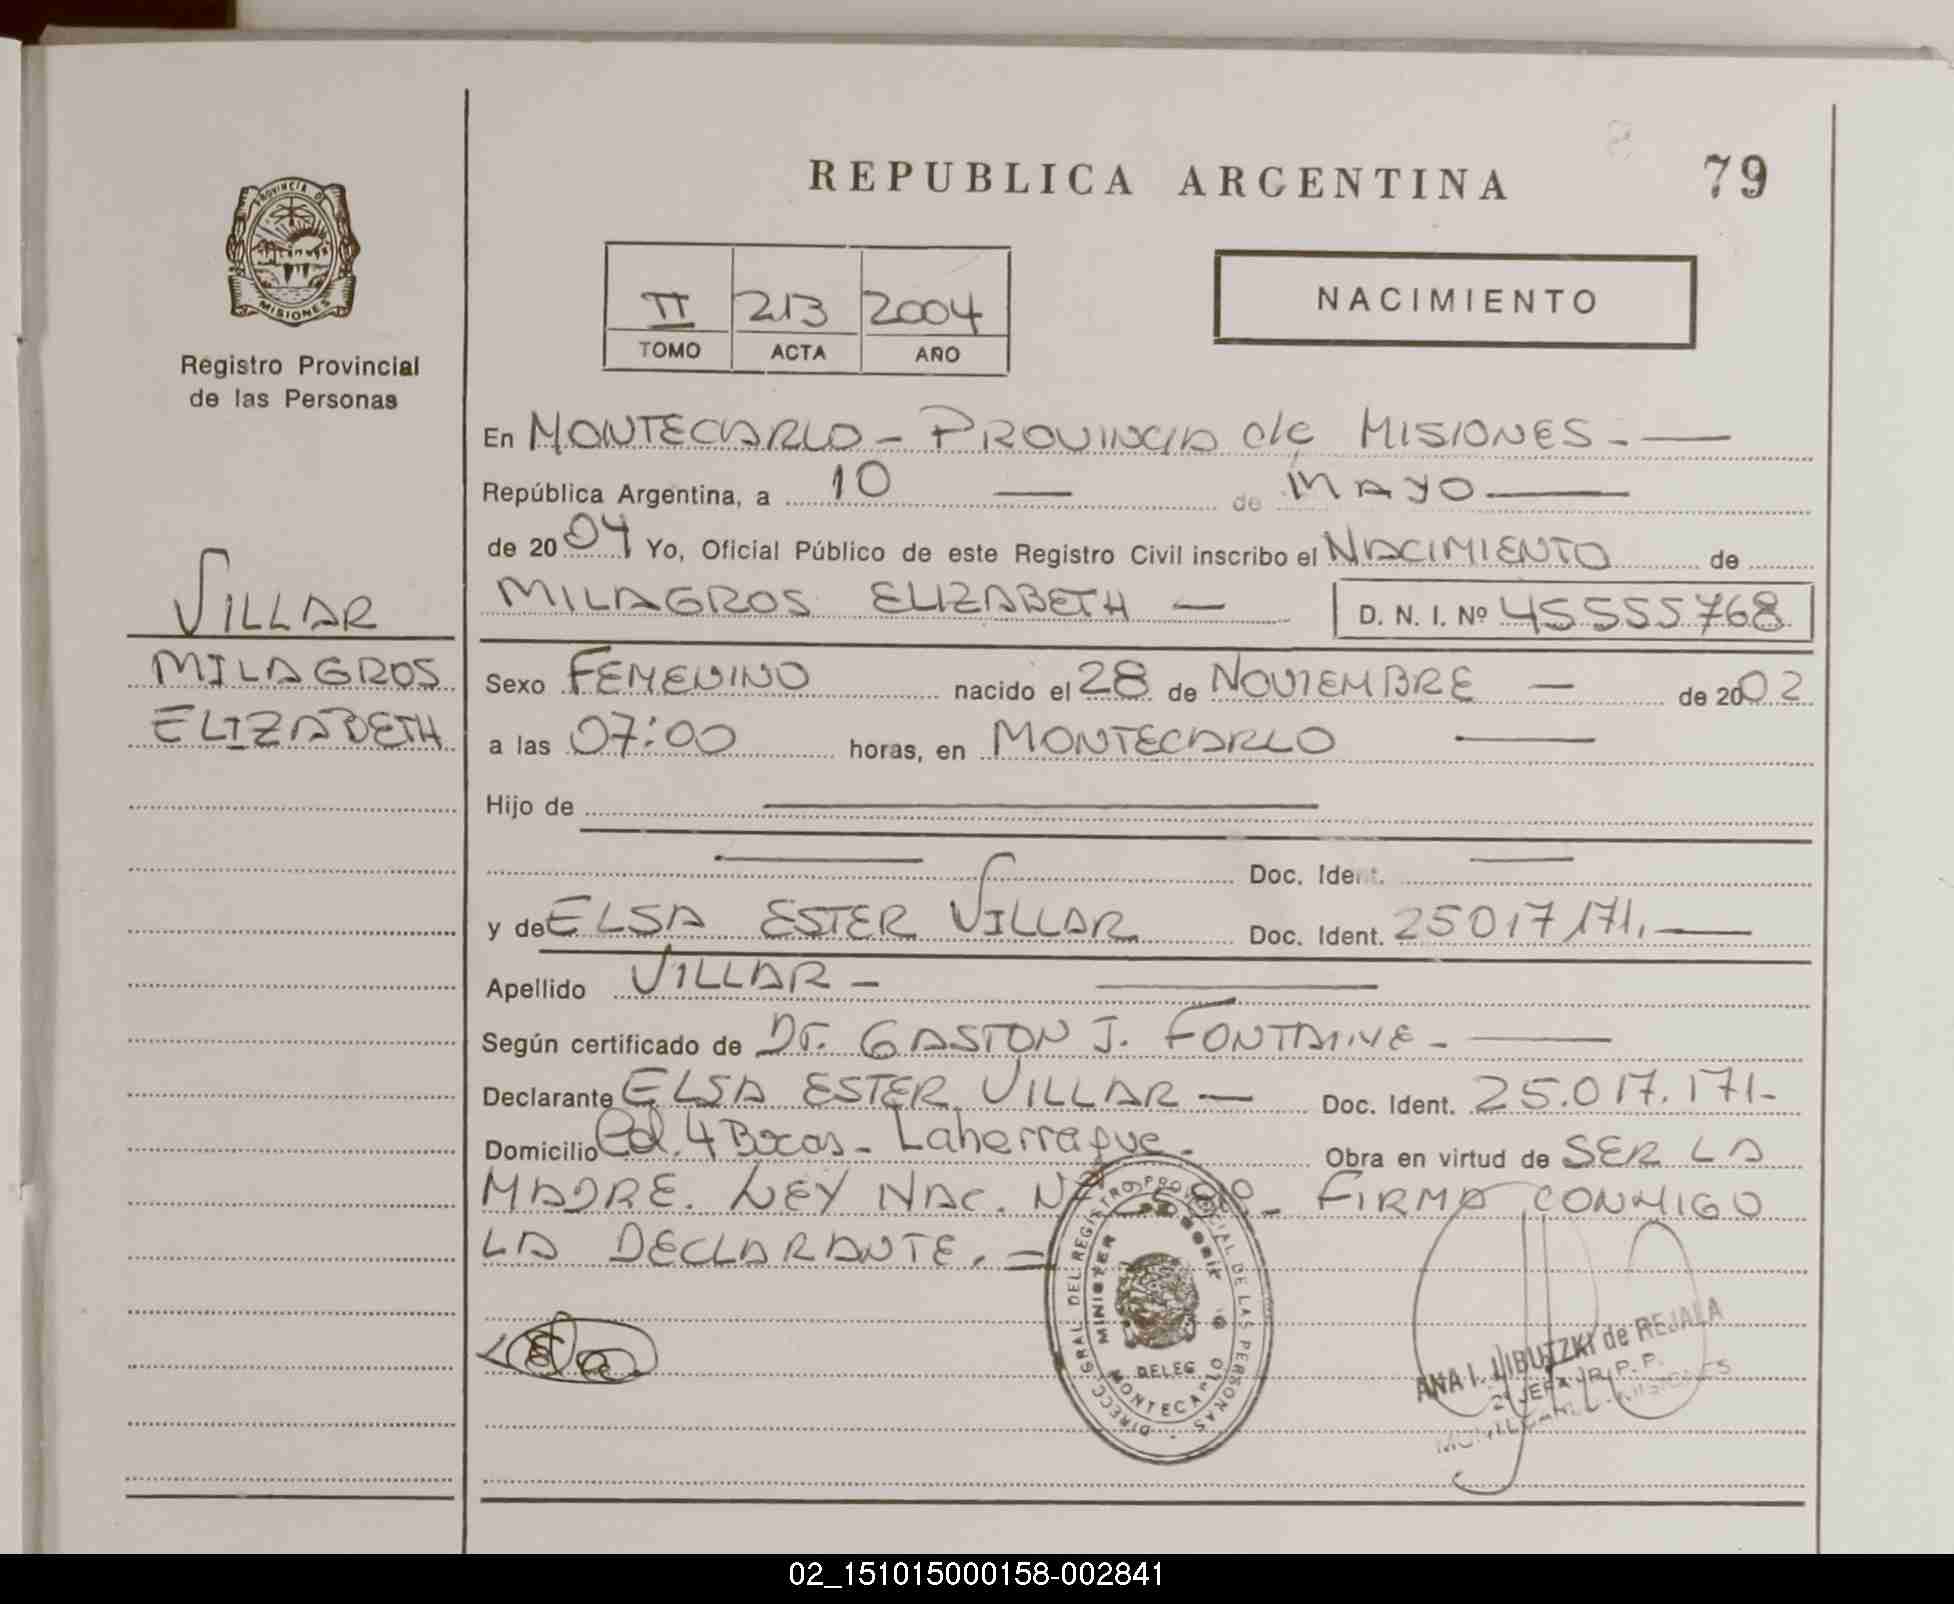 REPUBLICA ARGENTINA
79
PROVINCIA DE
MISIONES
Registro Provincial
de las Personas
II 213 2004
TOMO ACTA AÑO
NACIMIENTO
En MONTECARLO - PROVINCIA de MISIONES.-
República Argentina, a 10 de MAYO
de 2004 Yo, Oficial Público de este Registro Civil inscribo el NACIMIENTO de
MILAGROS ELIZABETH — D. N. I. Nº 45555768
VILLAR
MILAGROS
ELIZABETH
Sexo FEMENINO nacido el 28 de NOVIEMBRE — de 2002
a las 07:00 horas, en MONTECARLO
Hijo de
Doc. Ident.
y de ELSA ESTER VILLAR Doc. Ident. 25017171.
Apellido VILLAR -
Según certificado de Dr. GASTON J. FONTAINE -
Declarante ELSA ESTER VILLAR — Doc. Ident. 25.017.171-
Domicilio Col. 4 Bocas - Laherrague. Obra en virtud de SER LA
MADRE. LEY NAC. Nº - FIRMA CONMIGO
LA DECLARANTE. =
DIRECC. GRAL. DEL REGISTRO PROVINCIAL DE LAS PERSONAS
DELEG
MONTECARLO
ANA I. LIBUTZKI de REJALA
2º JEFA R. P. P.
MONTECARLO - MISIONES
02_151015000158-002841